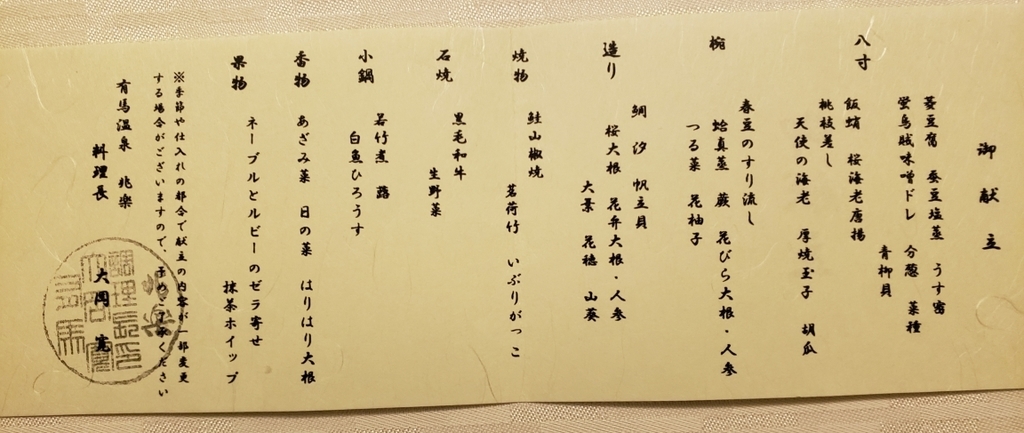 御献立
八寸
菱豆腐　蚕豆塩蒸　うす蜜
蛍烏賊味噌ドレ　分葱　菜種
青柳貝
飯蛸　桜海老唐揚
桃枝差し
天使の海老　厚焼玉子　胡瓜
椀
春豆のすり流し
蛤真蒸　蕨　花びら大根・人参
つる菜　花柚子
造り
鯛　汐　帆立貝
桜大根　花弁大根・人参
大葉　花穂　山葵
焼物
鮭山椒焼
茗荷竹　いぶりがっこ
石焼
黒毛和牛
生野菜
小鍋
若竹煮　蕗
白魚ひろうす
香物
あざみ菜　日の菜　はりはり大根
果物
ネーブルとルビーのゼラ寄せ
抹茶ホイップ
※季節や仕入れの都合で献立の内容が一部変更
する場合がございますので、予めご了承ください
有馬温泉　兆楽
料理長　大岡　寛